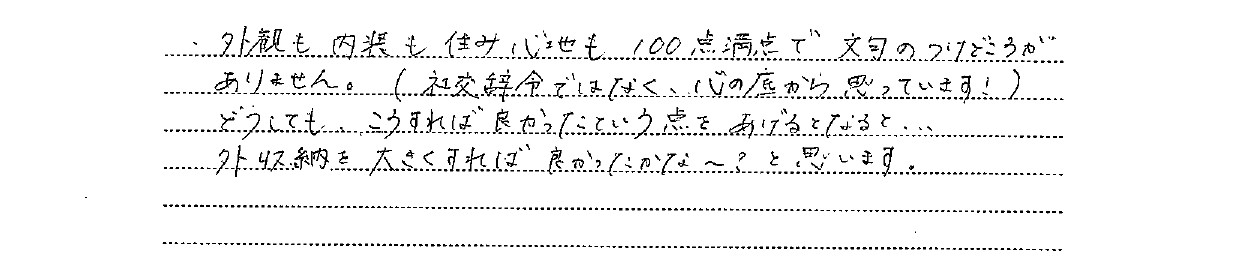 ・外観も内装も住み心地も100点満点で文句のつけどころが
ありません。(社交辞令ではなく、心の底から思っています!)
どうしても、こうすれば良かったという点をあげるとなると...
外収納を大きくすれば良かったかな〜?と思います。